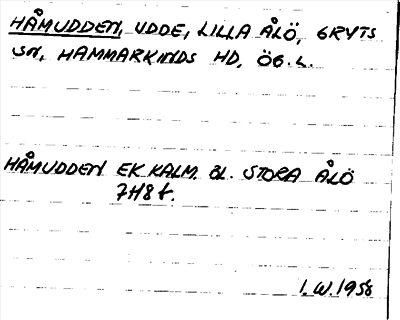 HÅMUDDEN, UDDE, LILLA ÅLÖ, GRYTS
SN, HAMMARKINDS HD, ÖG. L.
HÅMUDDEN EK KALM. BL. STORA ÅLÖ
7H8f.
I.W. 1958